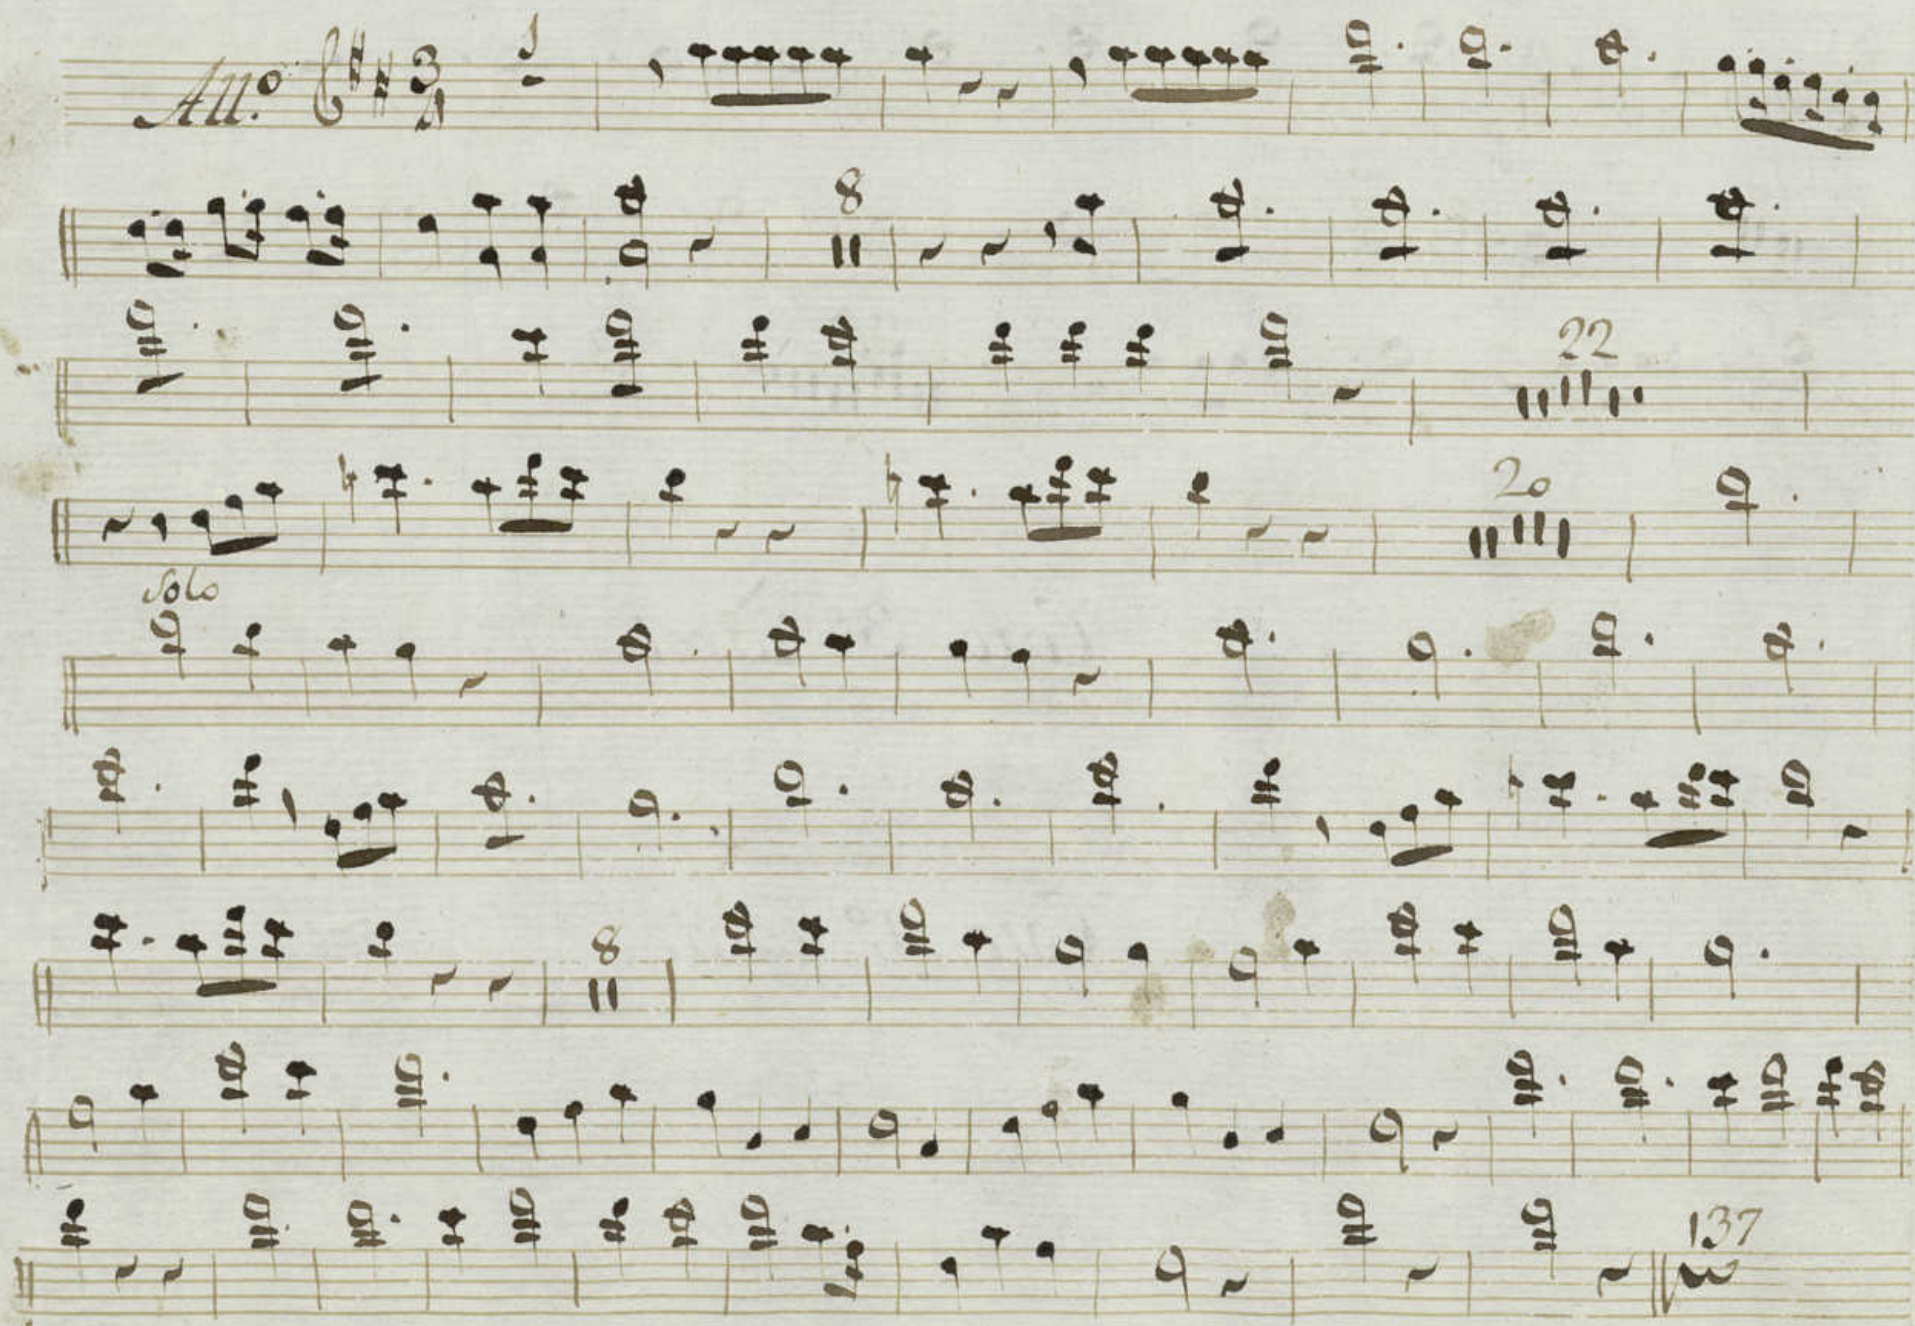 All.º 3 4 1
8
22
20
Solo
8
137